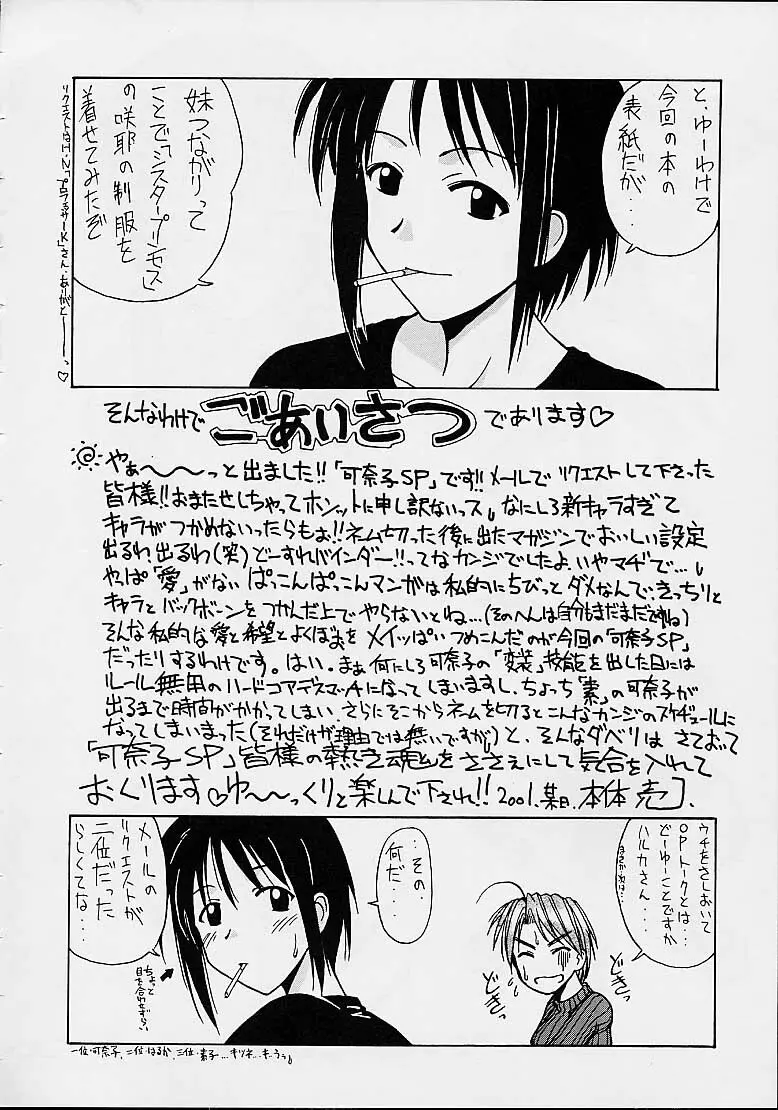 と、ゆーわけで
今回の本の
表紙だが・・・
妹つながりって
ことで「シスタープリンセス」
の咲耶の制服を
着せてみたぞ
そんなわけで ごあいさつ であります♡
やぁ〜〜〜っと出ました!!「可奈子SP」です!!メールでリクエストして下さった
皆様!!おまたせしちゃってホンットに申し訳ないっス なにしろ新キャラすぎて
キャラがつかめないったらもぉ!!ネーム切った後に出たマガジンでおいしい設定
出るわ、出るわ(笑)どーすれバインダー!!ってなカンジでしたよ、いやマヂで…
やっぱ「愛」がない ぱっこんぱっこんマンガは私的にちびっとダメなんで、きっちりと
キャラとバックボーンをつかんだ上でやらないとね…(そのへんは自分もまだまだですね)
そんな私的な愛と希望とよくぼぉをメイッぱいつめこんだのが今回の「可奈子SP」
だったりするわけです。はい。まぁ何にしろ可奈子の「変装」技能を出した日には
ルール無用のハードコアデスマッチになってしまいますし、ちょっち「素」の可奈子が
出るまで時間がかかってしまい さらにそこからネームを切るとこんなカンジのスケヂュールに
なってしまいまった(それだけが理由では無いですが)と、そんなダベリはさておいて
「可奈子SP」皆様の熱き魂をささえにして気合を入れて
おくります♡ゆ〜〜っくりと楽しんで下され!!2001.某日.本体 売].
ウチをさしおいて
OPトークとは・・・
どーゆーことですか
ハルカさん・・・
どきっ
どきっ
・・その
何だ・・・
メールの
リクエストが
二位だった
らしくてな・・・
ちょっと
目を合わせずらい
一位・可奈子、二位・はるか、三位・素子…キツネ…